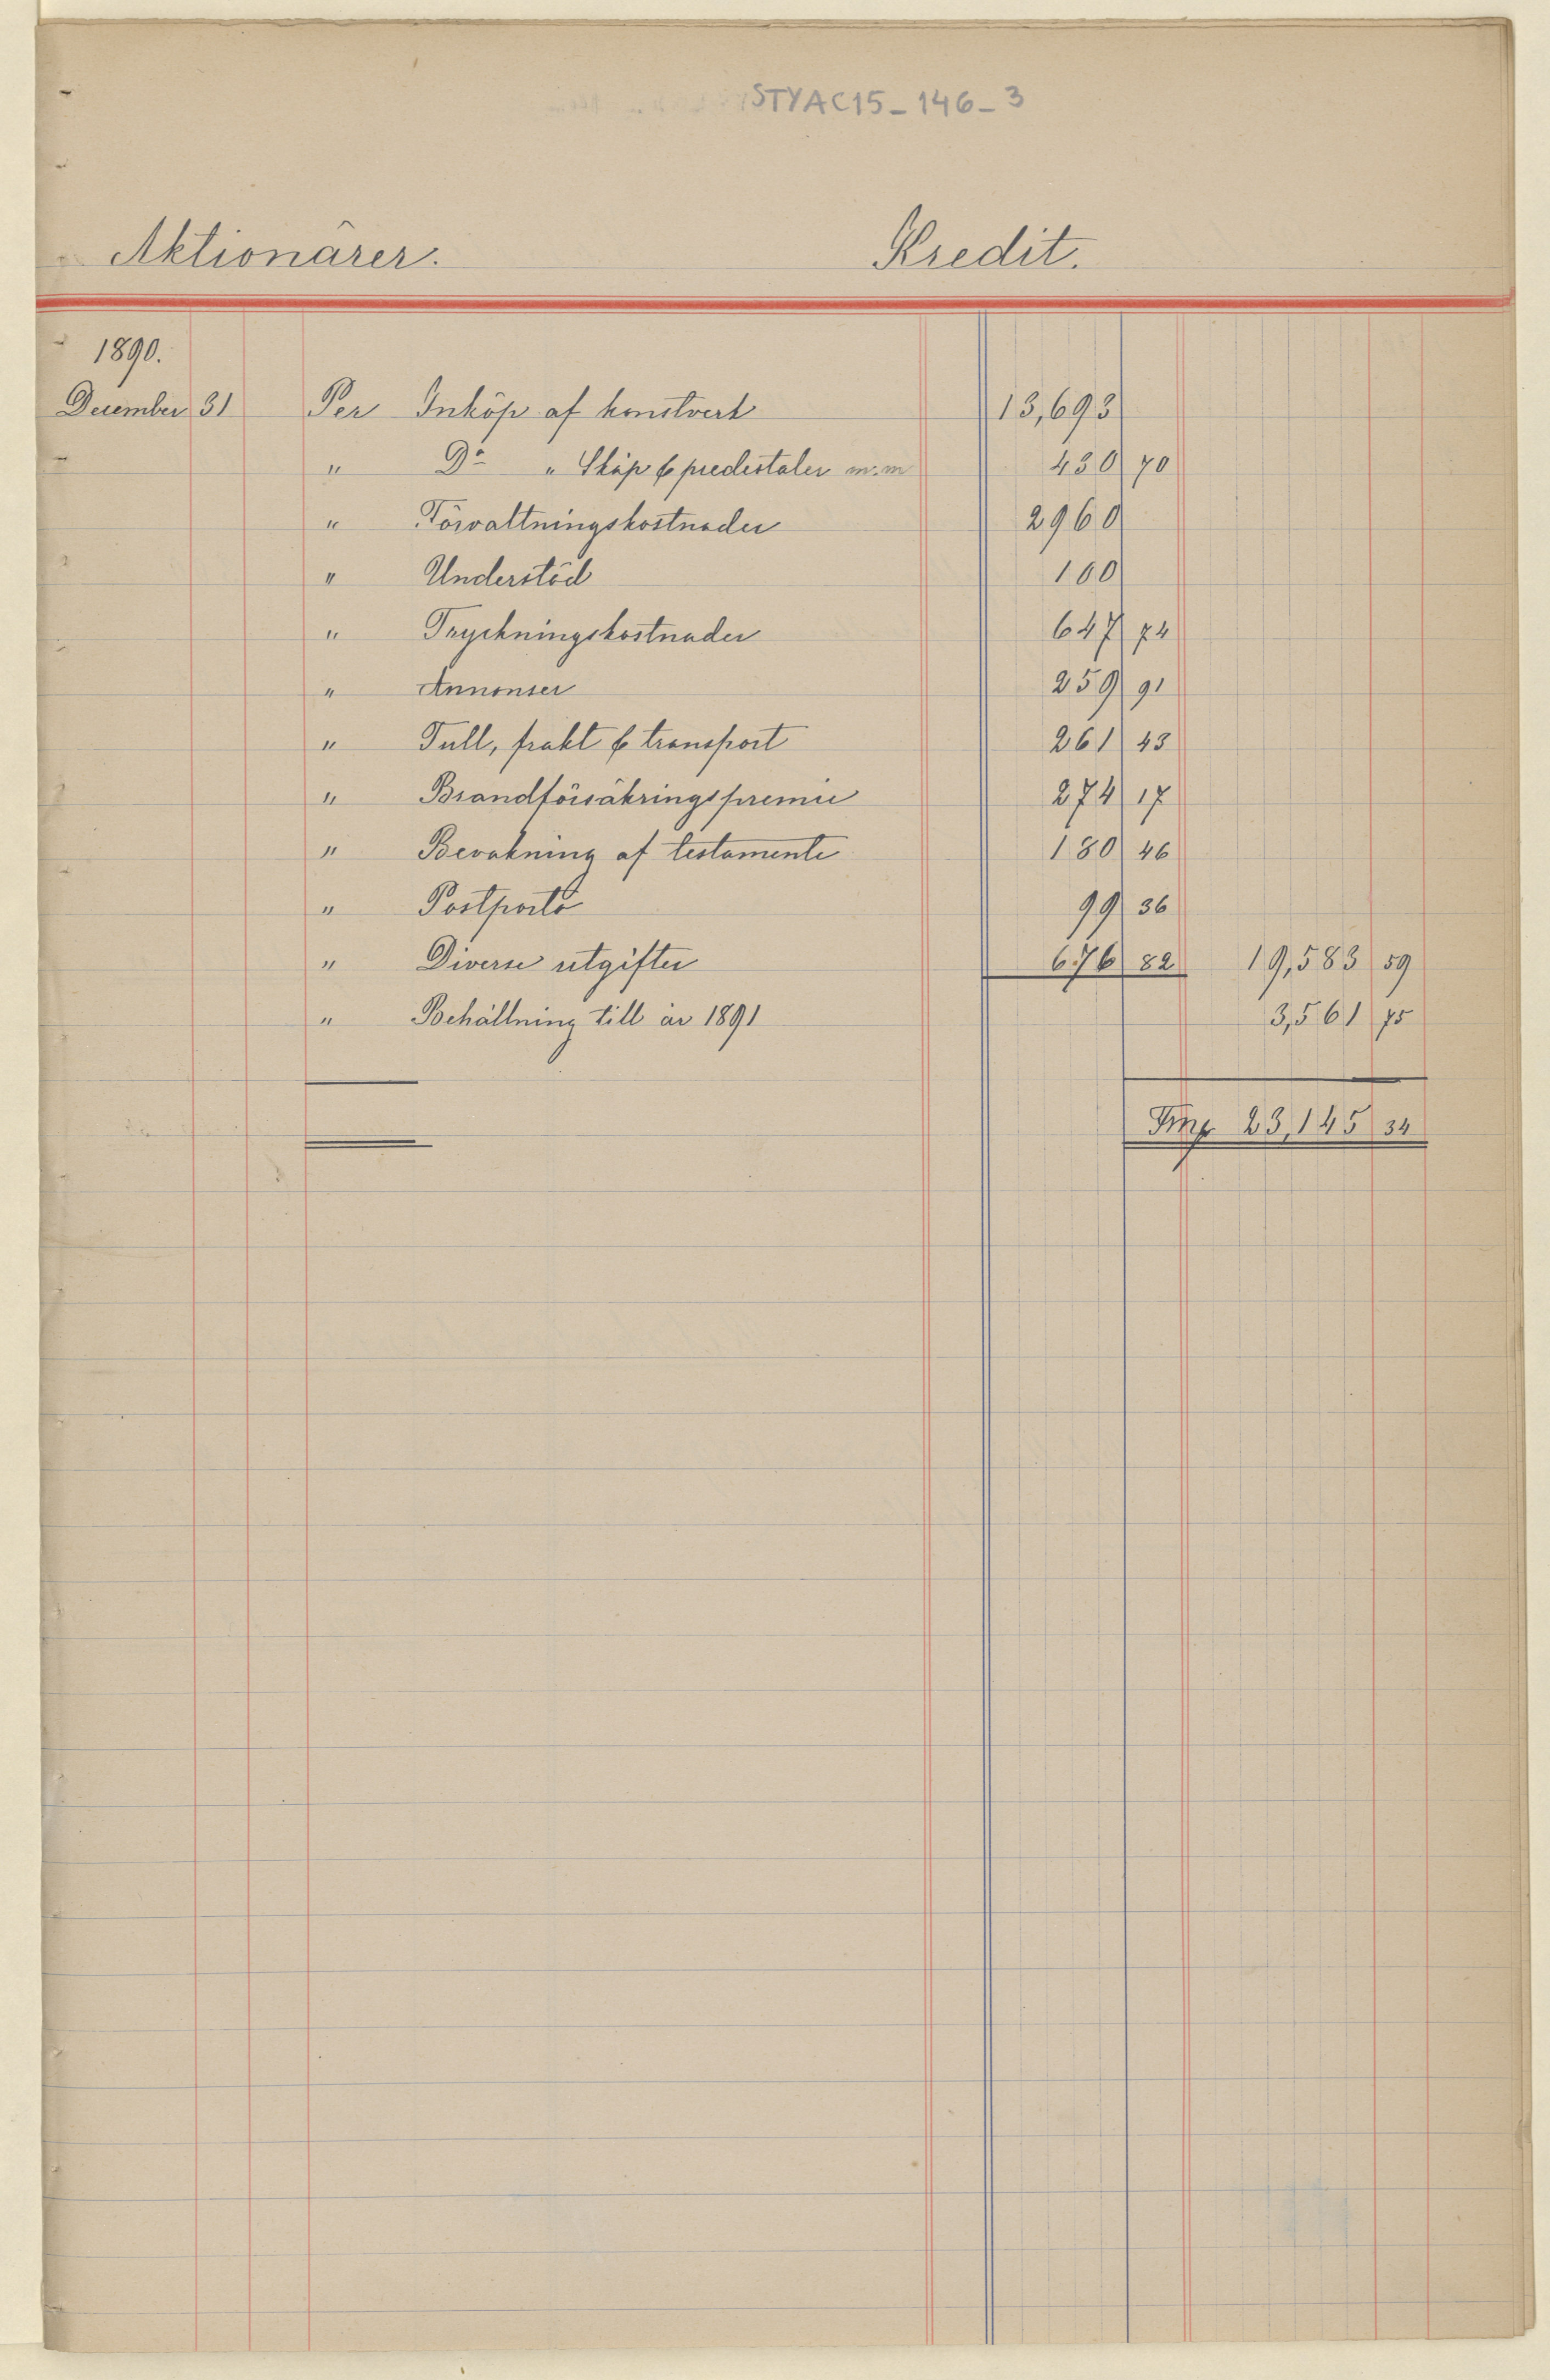 STYAC15_146_3
Aktionärer. Kredit.
1890.
December 31 Per Inköp af konstverk 13,693
" Do " Skåp & piedestaler m.m 430 70
" Förvaltningskostnader 2960
" Understöd 100
" Tryckningskostnader 647 74
" Annonser 259 91
" Tull, frakt & transport 261 43
" Brandförsäkringspremie 274 17
" Bevakning af testamente 180 46
" Postporto 99 36
" Diverse utgifter 676 82 19,583 59
" Behållning till år 1891 3,561 75
Fmk 23,145 34